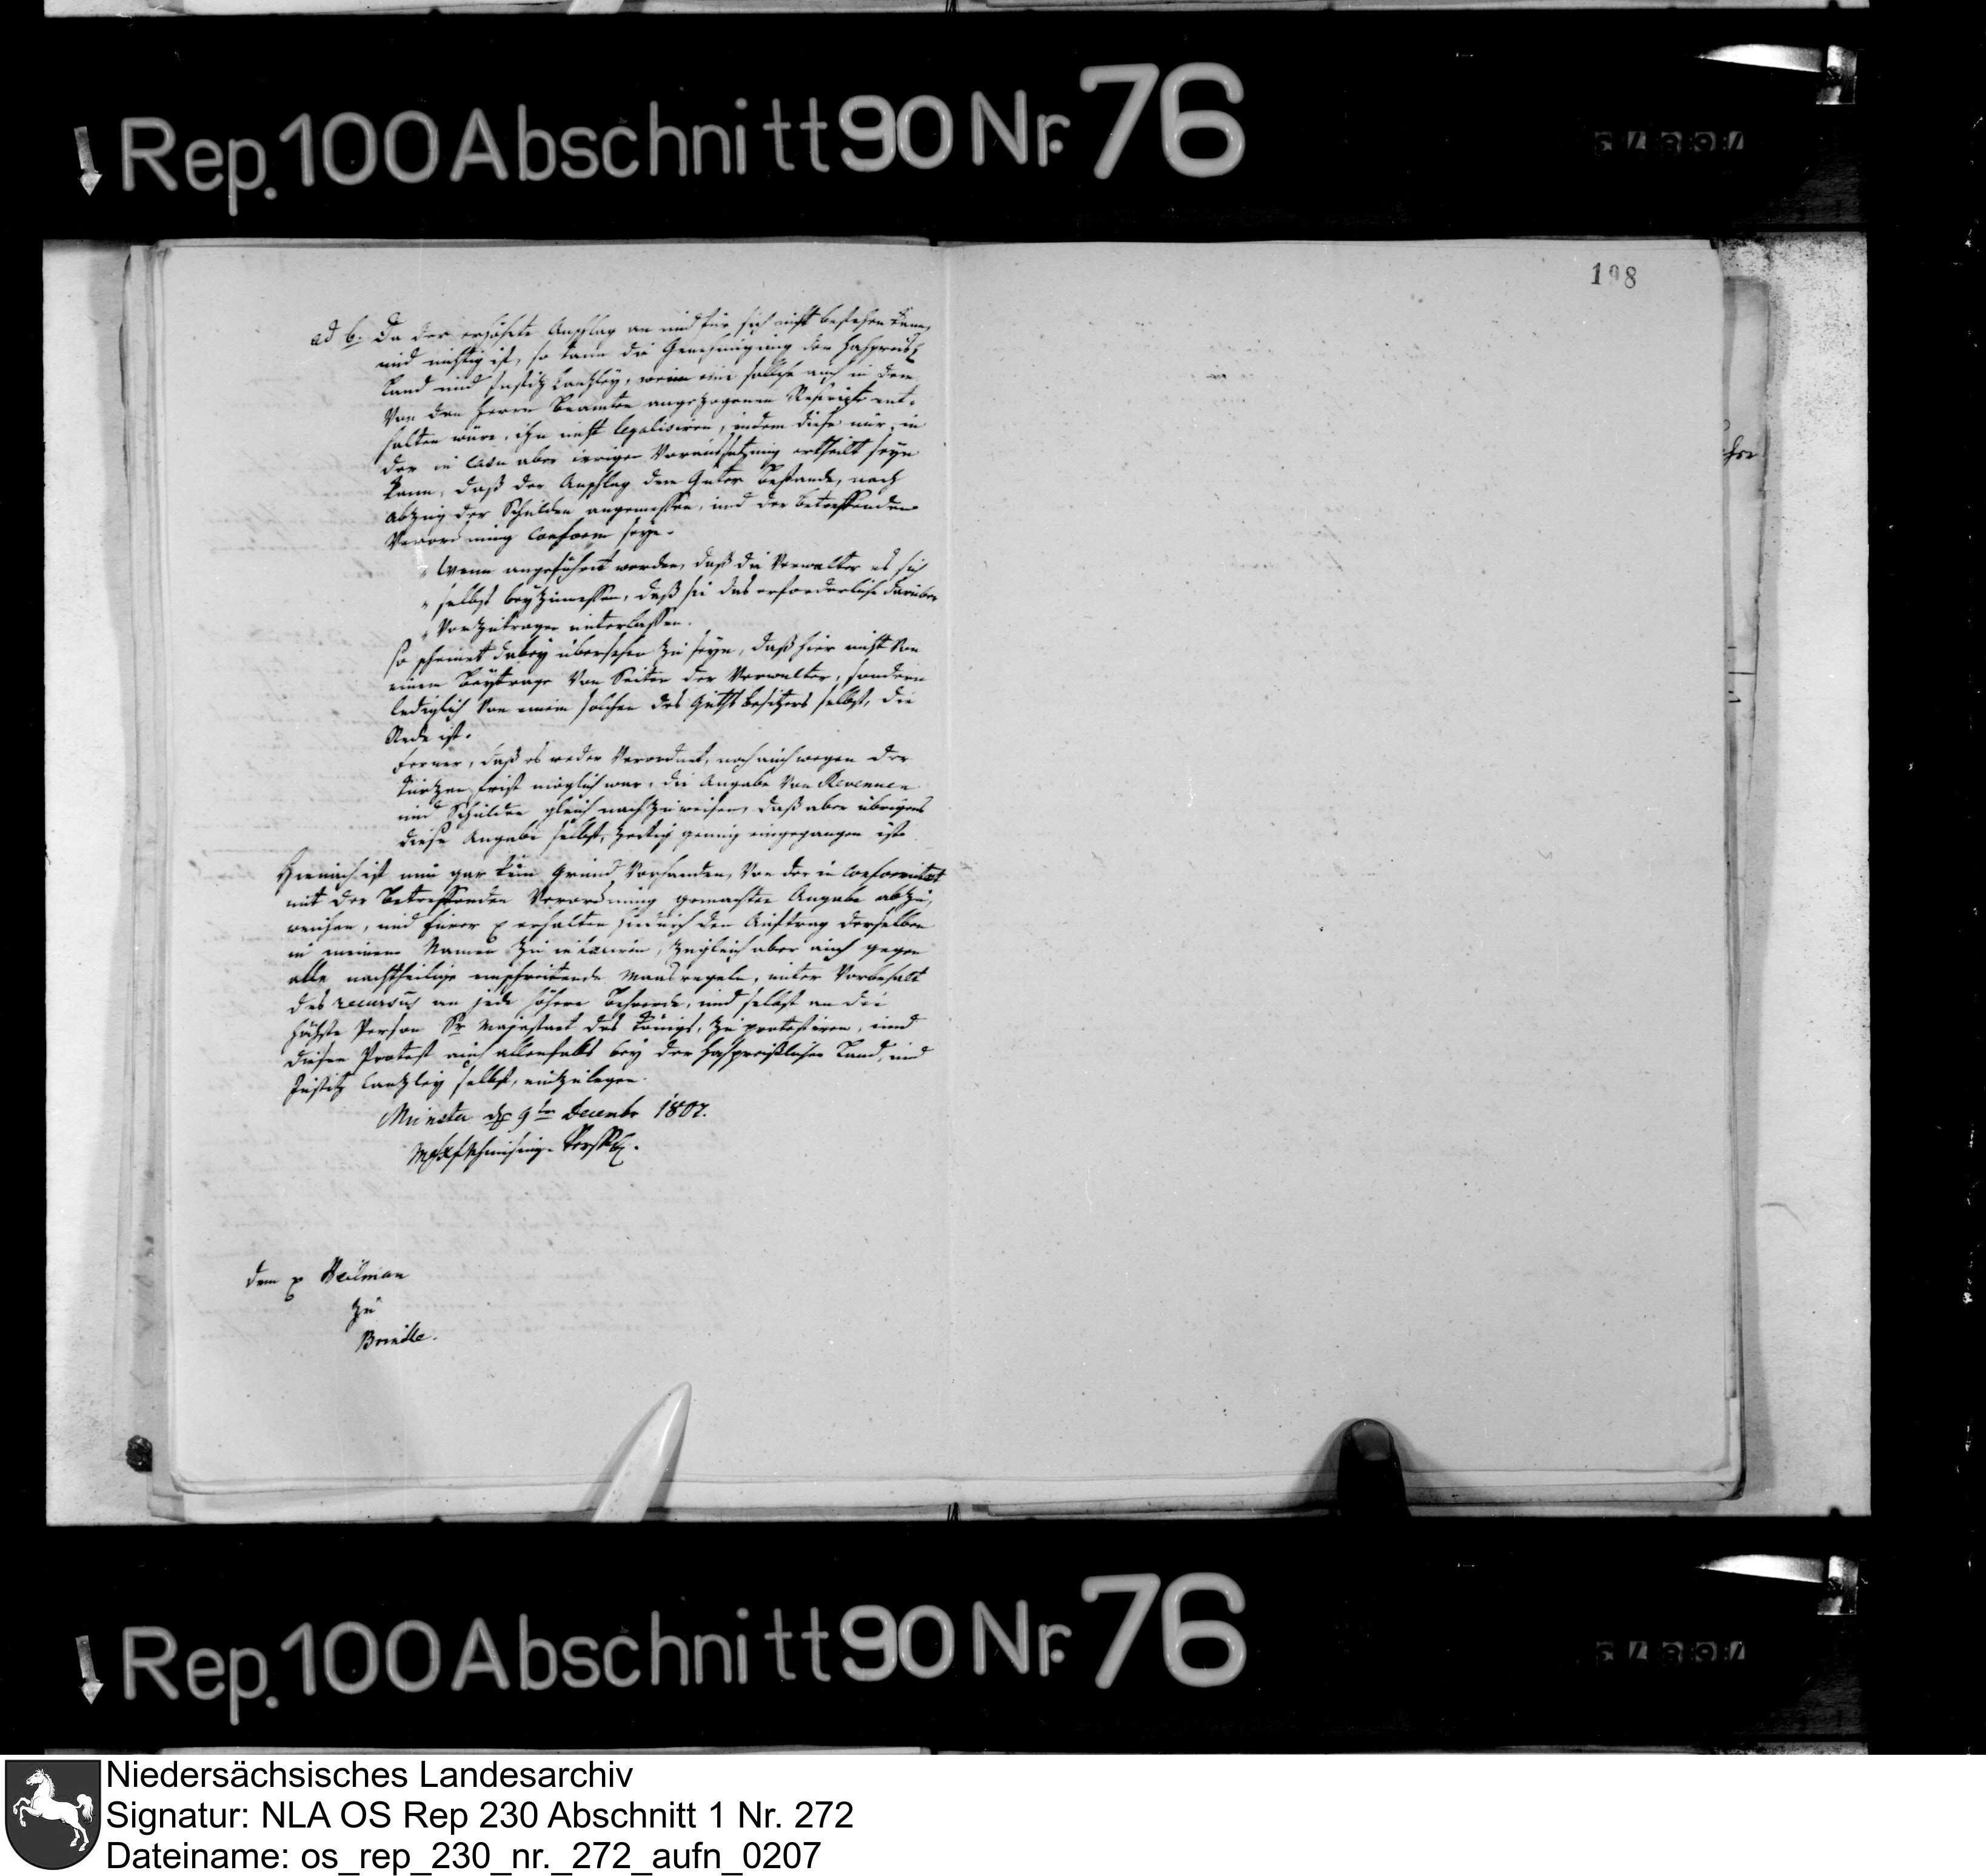 Rep. 100 Abschnitt 90 Nr. 76
198
ad b. Da der erhöhte Anschlag an und für sich nicht bestehen kann,
und nichtig ist, so kann die Genehmigung der Hochpreisl
Land und Justitz Cantzley, wenn eine solche auch in dem
von den Herrn Beamten angezogenen Rescripte ent-
halten wäre, ihn nicht legalisiren, indem diese nur in
der in casu aber irrigen Voraussetzung ertheilt seyn
kann, daß der Anschlag dem Güter Bestande, nach
Abzug der Schulden angemessen, und der betreffenden
Verordnung conform seye.
" Wenn angeführt worden, daß die Verwalter es sich
" selbst beyzumessen, daß sie das erforderliche darüber
" vorzutragen unterlassen.
so scheinet dabey übersehen zu seyn, daß hier nicht von
einem Beytrage von Seiten der Verwalter, sondern
lediglich von einem solchen des Guths besitzers selbst, die
Rede ist.
Ferner, daß es weder verordnet, noch auch wegen der
kurtzen Frist möglich war, die Angabe von Revenuen
und Schulden gleich nachzuweisen, daß aber übrigens
diese Angabe selbst, zeitig genug eingegangen ist.
Hienach ist nun gar kein Grund vorhanden, von der in Conformitaet
mit der betreffenden Verordnung gemachten Angabe abzu-
weichen, und Euer erhalten hiedurch den Auftrag derselben
in meinem Namen zu inhaeriren, zugleich aber auch gegen
alle nachtheilige einschreitende Maasregeln, unter Vorbehalt
des recursus an jede höhere Behoerde, und selbst an die
höchste Person Sr Majestaet des Königs, zu protestiren, und
diesen Protest auch allenfalls bey der Hochpreißlichen Land, und
Justitz Cantzley selbst, einzulegen.
Münster 9ten Decembr 1807.
dem Heilman
zu
Bruche.
Rep. 100 Abschnitt 90 Nr. 76
Niedersächsisches Landesarchiv
Signatur: NLA OS Rep 230 Abschnitt 1 Nr. 272
Dateiname: os_rep_230_nr._272_aufn_0207